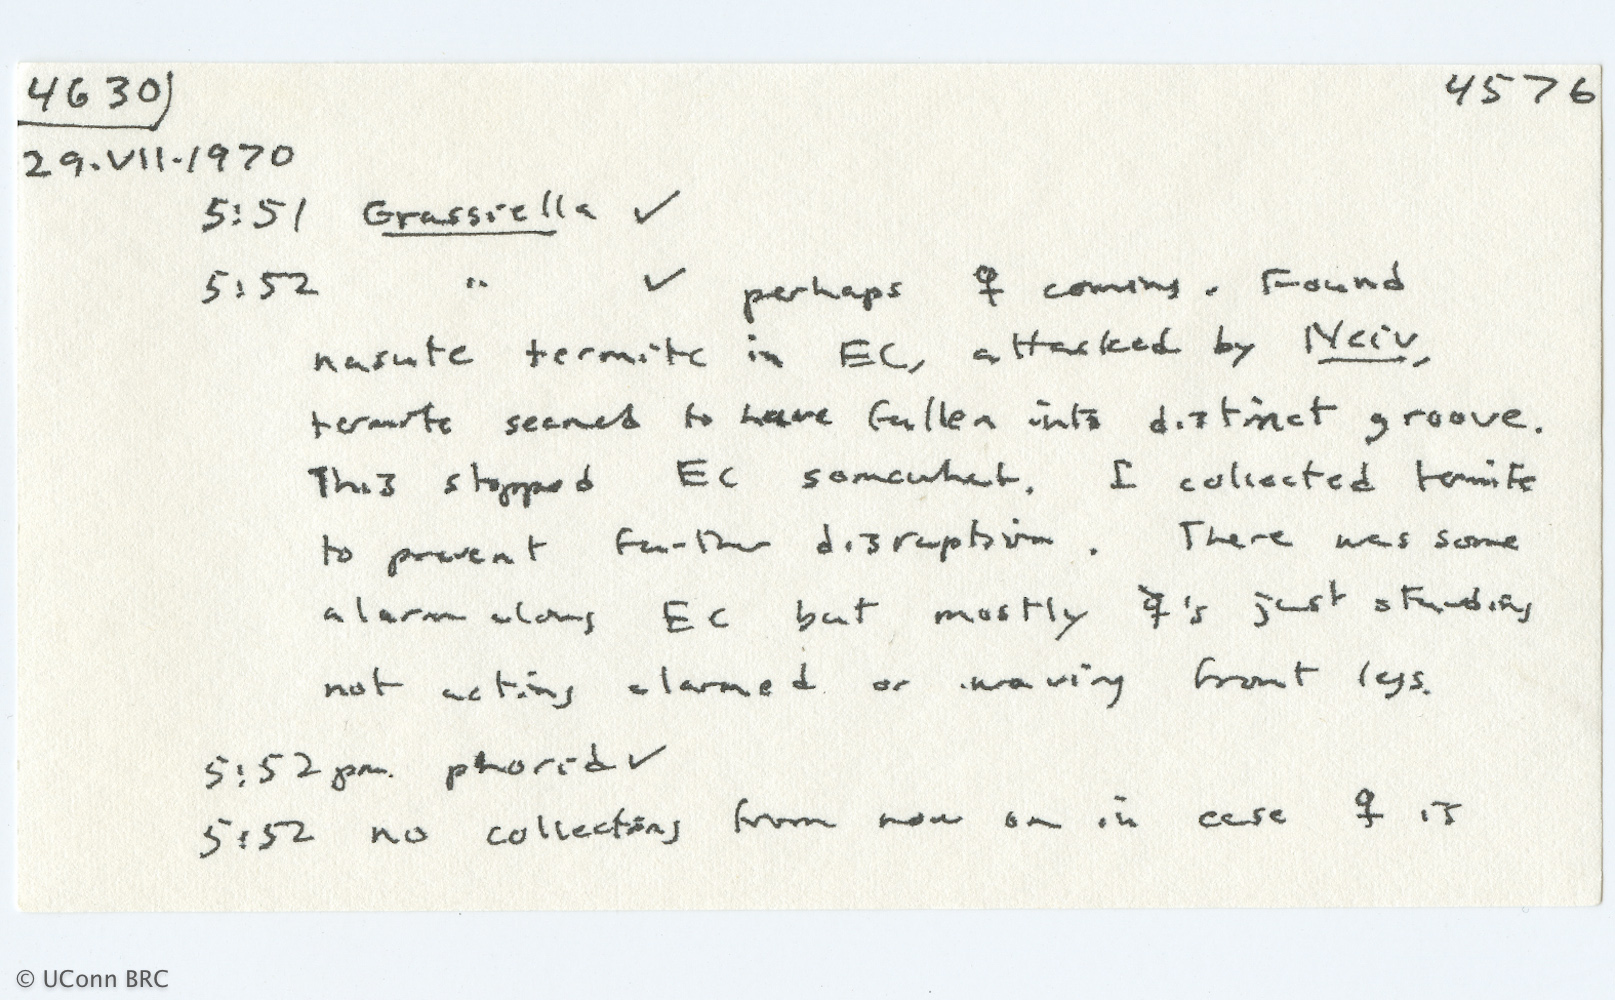 4630
4576
29.VII.1970
5:51 Grassiella ✓
5:52 " ✓ perhaps ♀ coming. Found
nasute termite in EC, attacked by Nciv,
termite seemed to have fallen into distinct groove.
This stopped EC somewhat. I collected termite
to prevent further disruption. There was some
alarm along EC but mostly ☿'s just standing
not acting alarmed or waving front legs.
5:52 pm. phorid ✓
5:52 no collecting from now on in case ♀ is
© UConn BRC